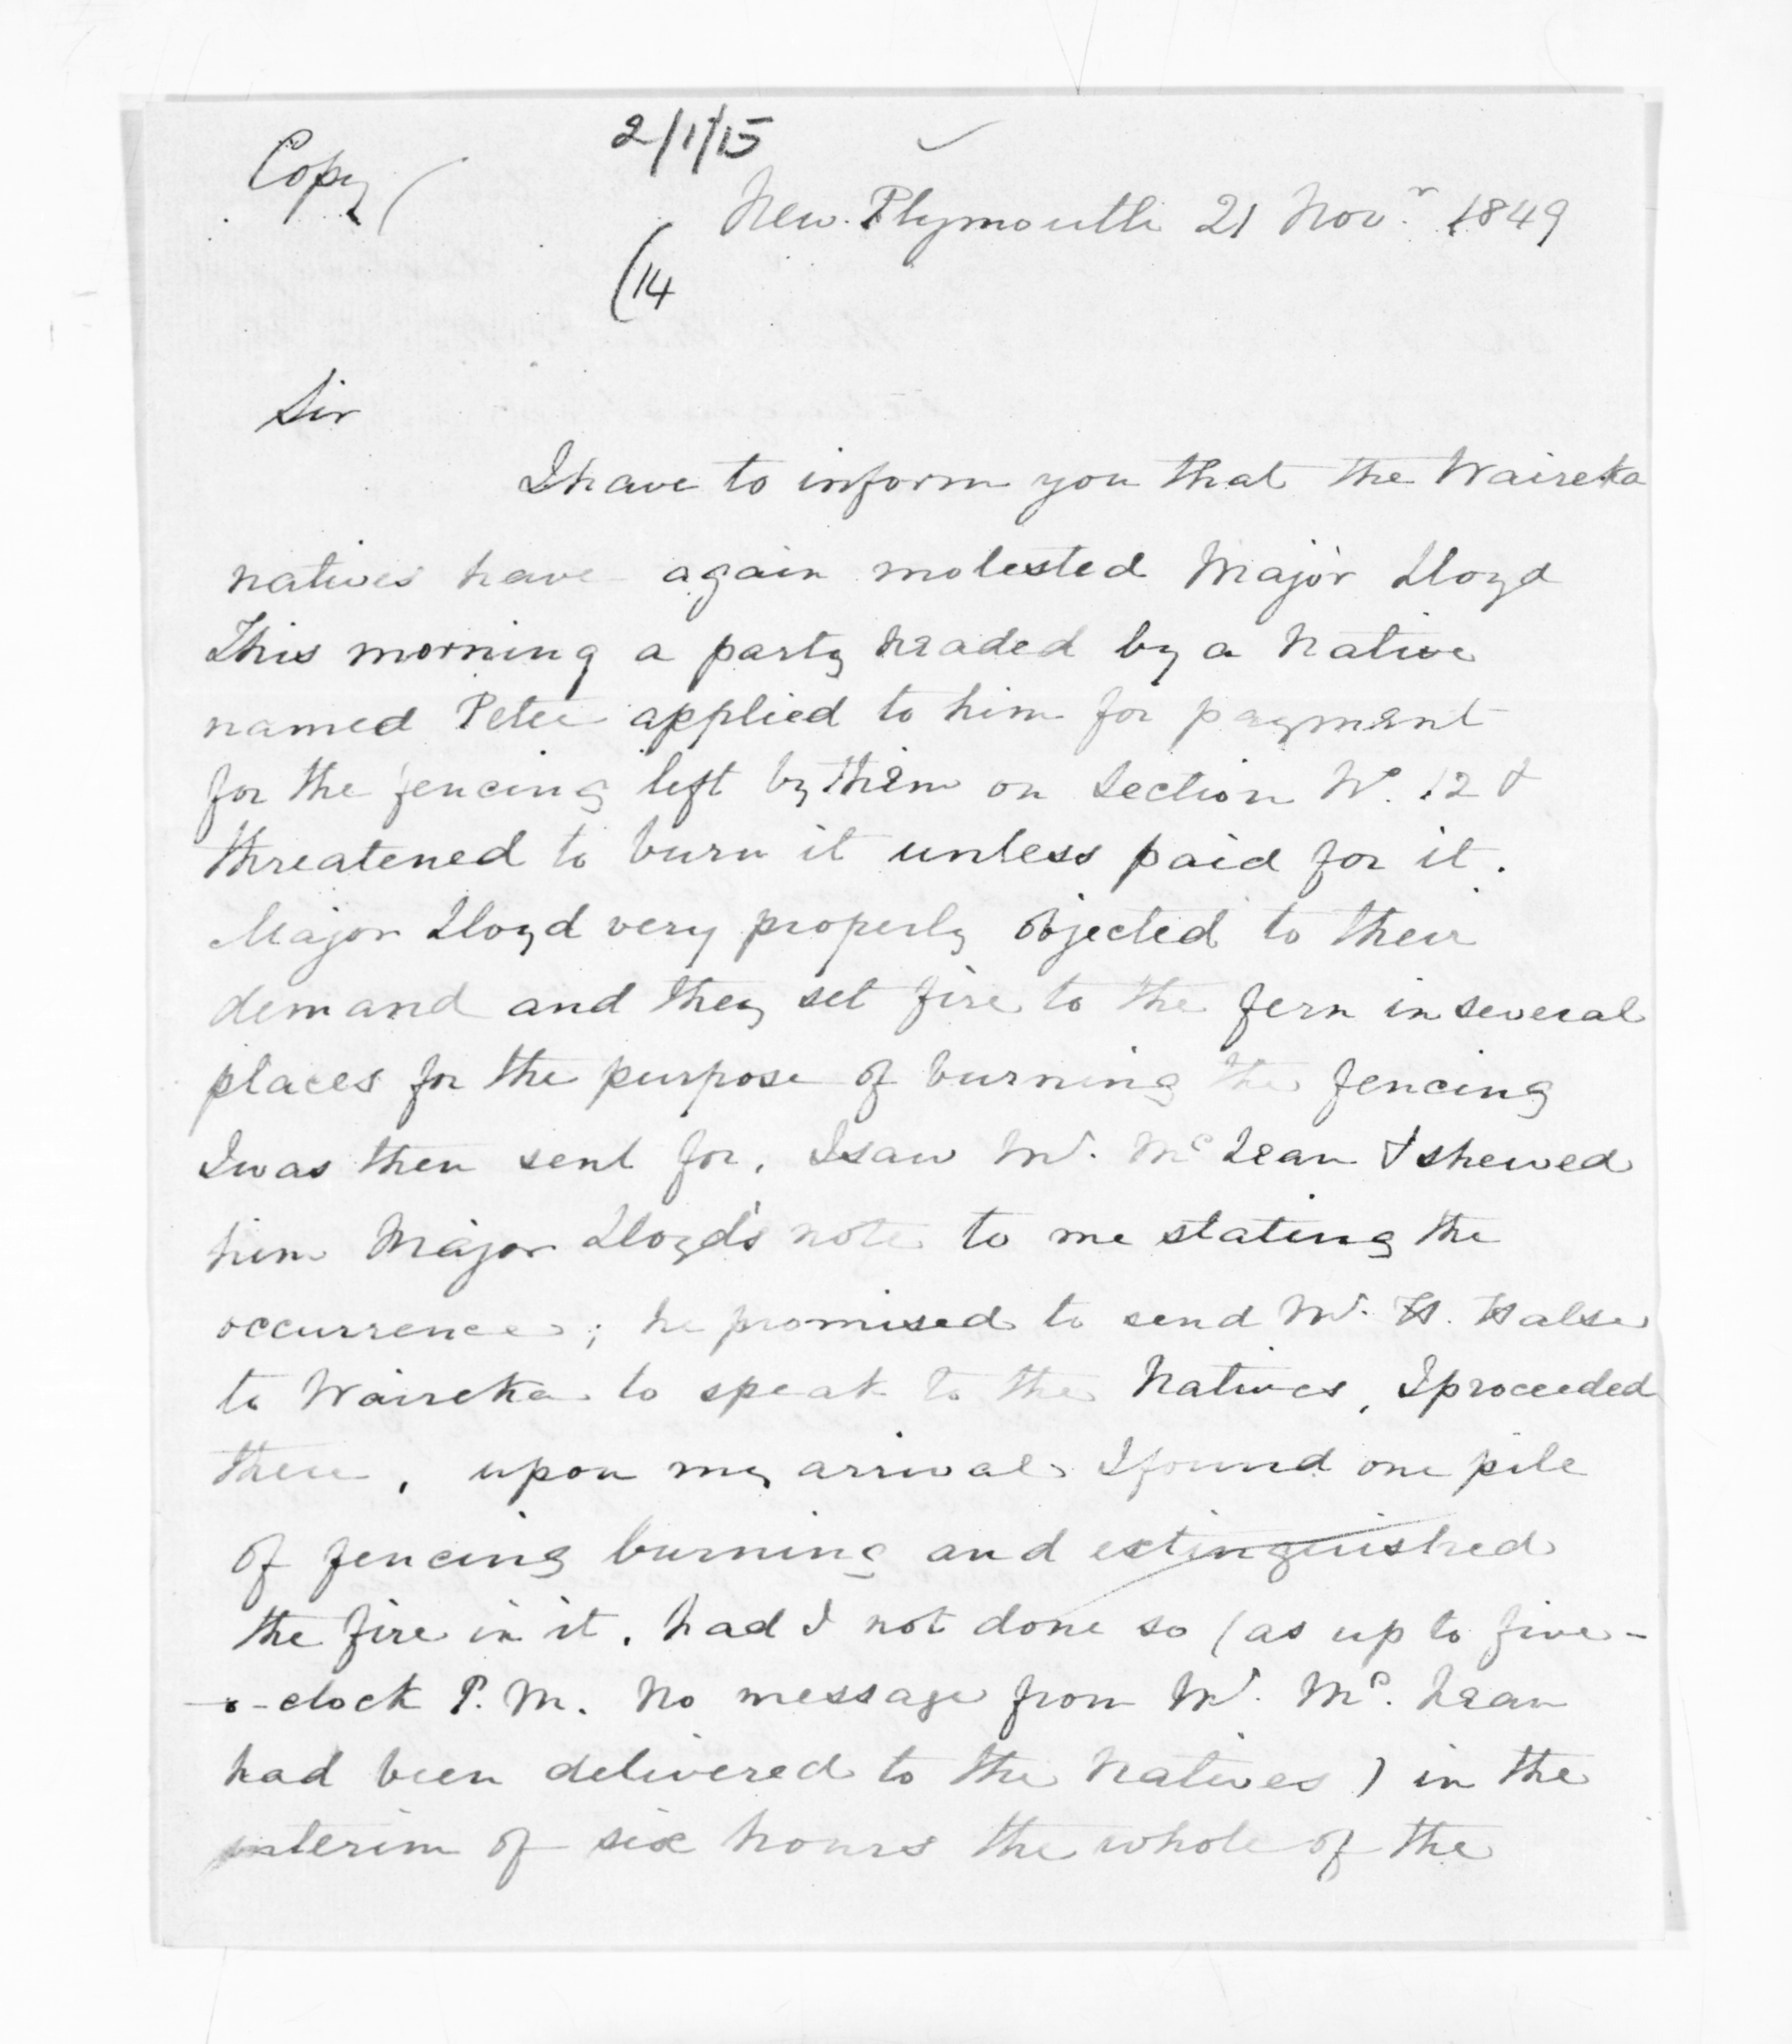 Copy (
2/1/15
New Plymouth 21 Novr. 1849
(14
Sir
I have to inform you that the Waireka
natives have again molested Major Lloyd
This morning a party headed by a Native
named Peter applied to him for payment
for the fencing left by them on Section No. 12 &
threatened to burn it unless paid for it.
Major Lloyd very properly objected to their
demand and they set fire to the fern in several
places for the purpose of burning the fencing
I was then sent for, I saw Mr. McLean & shewed
him Major Lloyd's note to me stating the
occurrence; he promised to send Mr. H. Halse
to Waireka to speak to the Natives, I proceeded
there, upon my arrival I found one pile
of fencing burning and extinguished
the fire in it. had I not done so (as up to five-
-o-clock P.M. No message from Mr. McLean
had been delivered to the Natives) in the
interim of six hours the whole of the